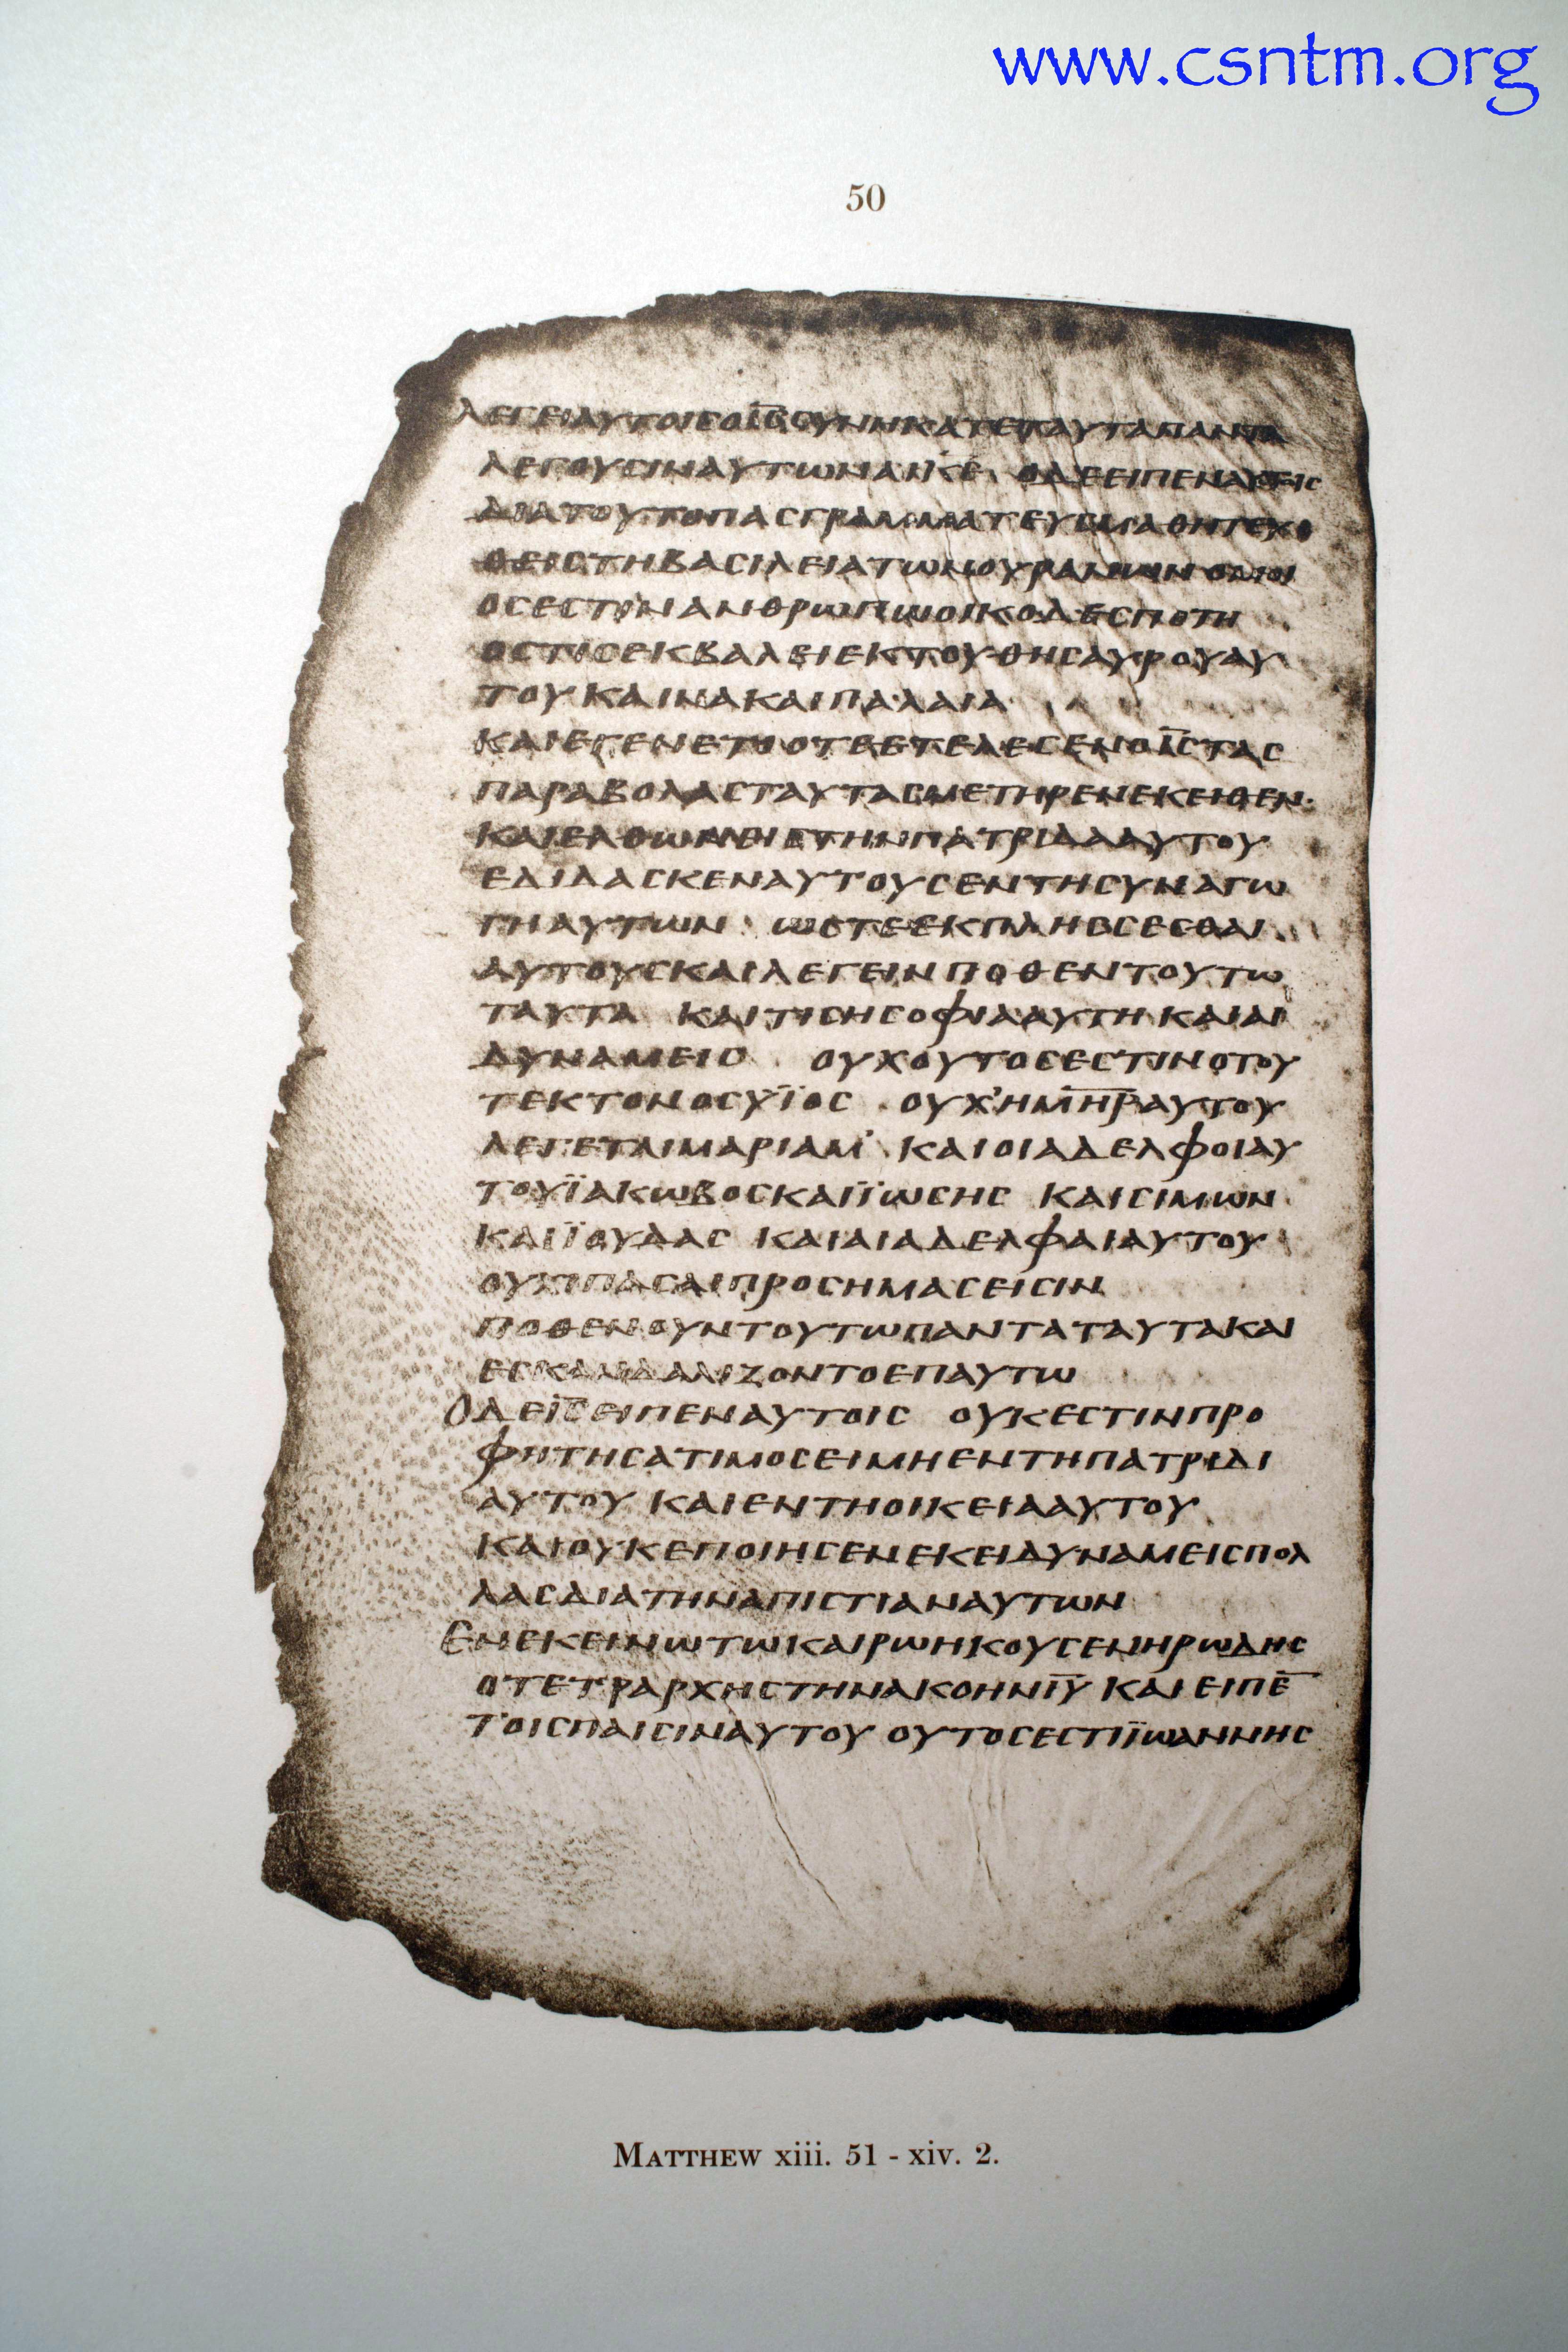 www.csntm.org
50
ΛΕΓΕΙΑΥΤΟΙCΟΙ̅C̅CΥΝΗΚΑΤΕΤΑΥΤΑΠΑΝΤΑ
ΛΕΓΟΥCΙΝΑΥΤΩΝΑΙΚ̅Ε̅ ΟΔΕΕΙΠΕΝΑΥΤΟΙC
ΔΙΑΤΟΥΤΟΠΑCΓΡΑΜΜΑΤΕΥCΜΑΘΗΤΕΥ
ΘΕΙCΤΗΒΑCΙΛΕΙΑΤΩΝΟΥΡΑΝΩΝΟΜΟΙ
ΟCΕCΤΙΝΑΝΘΡΩΠΩΟΙΚΟΔΕCΠΟΤΗ
ΟCΤΙCΕΚΒΑΛΕΙΕΚΤΟΥΘΗCΑΥΡΟΥΑΥ
ΤΟΥΚΑΙΝΑΚΑΙΠΑΛΑΙΑ
ΚΑΙΕΓΕΝΕΤΟΟΤΕΕΤΕΛΕCΕΝΟΙ̅C̅ΤΑC
ΠΑΡΑΒΟΛΑCΤΑΥΤΑCΜΕΤΗΡΕΝΕΚΕΙΘΕΝ·
ΚΑΙΕΛΘΩΝΕΙCΤΗΝΠΑΤΡΙΔΑΑΥΤΟΥ
ΕΔΙΔΑCΚΕΝΑΥΤΟΥCΕΝΤΗCΥΝΑΓΩ
ΓΗΑΥΤΩΝ ΩCΤΕΕΚΠΛΗCCΕCΘΑΙ
ΑΥΤΟΥCΚΑΙΛΕΓΕΙΝΠΟΘΕΝΤΟΥΤΩ
ΤΑΥΤΑ ΚΑΙΤΙCΗCΟΦΙΑΑΥΤΗΚΑΙΑΙ
ΔΥΝΑΜΕΙC ΟΥΧΟΥΤΟCΕCΤΙΝΟΤΟΥ
ΤΕΚΤΟΝΟCΥΪΟC ΟΥΧ’ΗΜ̅Η̅Ρ̅ΑΥΤΟΥ
ΛΕΓΕΤΑΙΜΑΡΙΑΜ’ ΚΑΙΟΙΑΔΕΛΦΟΙΑΥ
ΤΟΥΪΑΚΩΒΟCΚΑΙΪΩCΗC ΚΑΙCΙΜΩΝ
ΚΑΙΪΟΥΔΑC ΚΑΙΑΙΑΔΕΛΦΑΙΑΥΤΟΥ
ΟΥΧΙΠΑCΑΙΠΡΟCΗΜΑCΕΙCΙΝ
ΠΟΘΕΝΟΥΝΤΟΥΤΩΠΑΝΤΑΤΑΥΤΑΚΑΙ
ΕCΚΑΝΔΑΛΙΖΟΝΤΟΕΠΑΥΤΩ
ΟΔΕΙ̅C̅ΕΙΠΕΝΑΥΤΟΙC ΟΥΚΕCΤΙΝΠΡΟ
ΦΗΤΗCΑΤΙΜΟCΕΙΜΗΕΝΤΗΠΑΤΡΙΔΙ
ΑΥΤΟΥ ΚΑΙΕΝΤΗΟΙΚΕΙΑΑΥΤΟΥ
ΚΑΙΟΥΚΕΠΟΙΗCΕΝΕΚΕΙΔΥΝΑΜΕΙCΠΟΛ
ΛΑCΔΙΑΤΗΝΑΠΙCΤΙΑΝΑΥΤΩΝ
ΕΝΕΚΕΙΝΩΤΩΚΑΙΡΩΗΚΟΥCΕΝΗΡΩΔΗC
ΟΤΕΤΡΑΡΧΗCΤΗΝΑΚΟΗΝΙ̅Υ̅ ΚΑΙΕΙΠΕ̅
ΤΟΙCΠΑΙCΙΝΑΥΤΟΥ ΟΥΤΟCΕCΤΙΪΩΑΝΝΗC
MATTHEW xiii. 51 - xiv. 2.